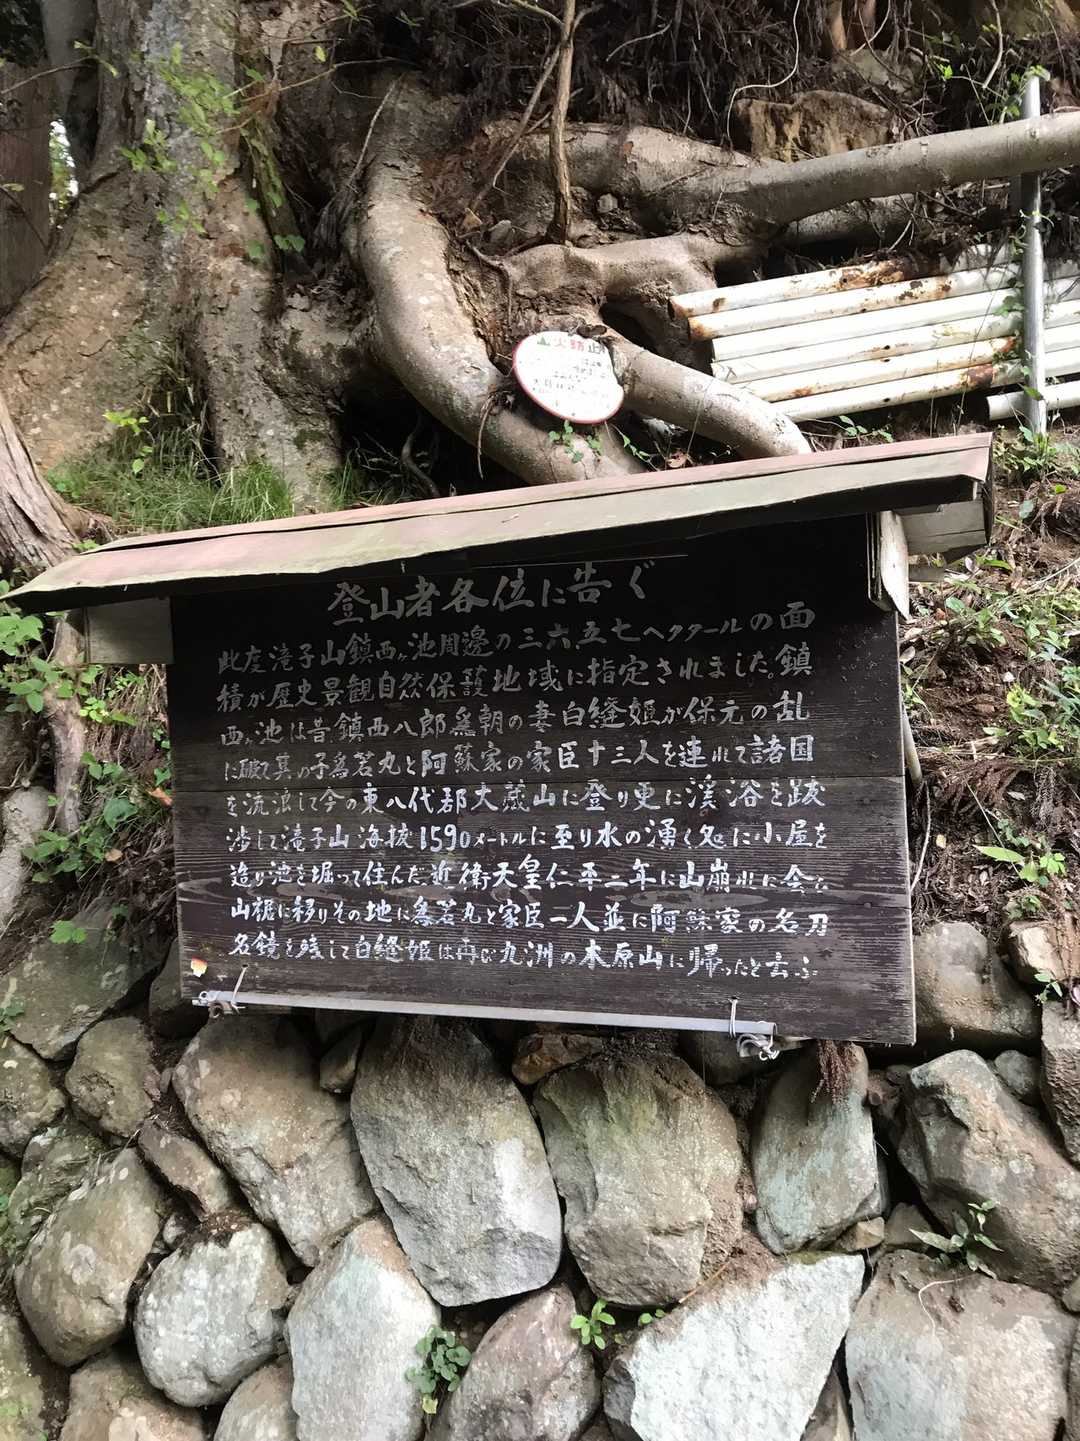 火 防止
登山者各位に告ぐ
此度滝子山鎮西ヶ池周邊の三六.五七ヘクタールの面
積が歴史景観自然保護地域に指定されました。鎮
西ヶ池は昔鎮西八郎為朝の妻白縫姫が保元の乱
に破て其の子為若丸と阿蘇家の家臣十三人を連れて諸国
を流浪して今の東八代郡大蔵山に登り更に渓谷を跋
渉して滝子山海抜1590メートルに至り水の湧く処に小屋を
造り池を堀って住んだ近衛天皇仁平二年に山崩れに会い
山裾に移りその地に為若丸と家臣一人並に阿蘇家の名刀
名鏡を残して白縫姫は再び九洲の木原山に帰ったと云ふ